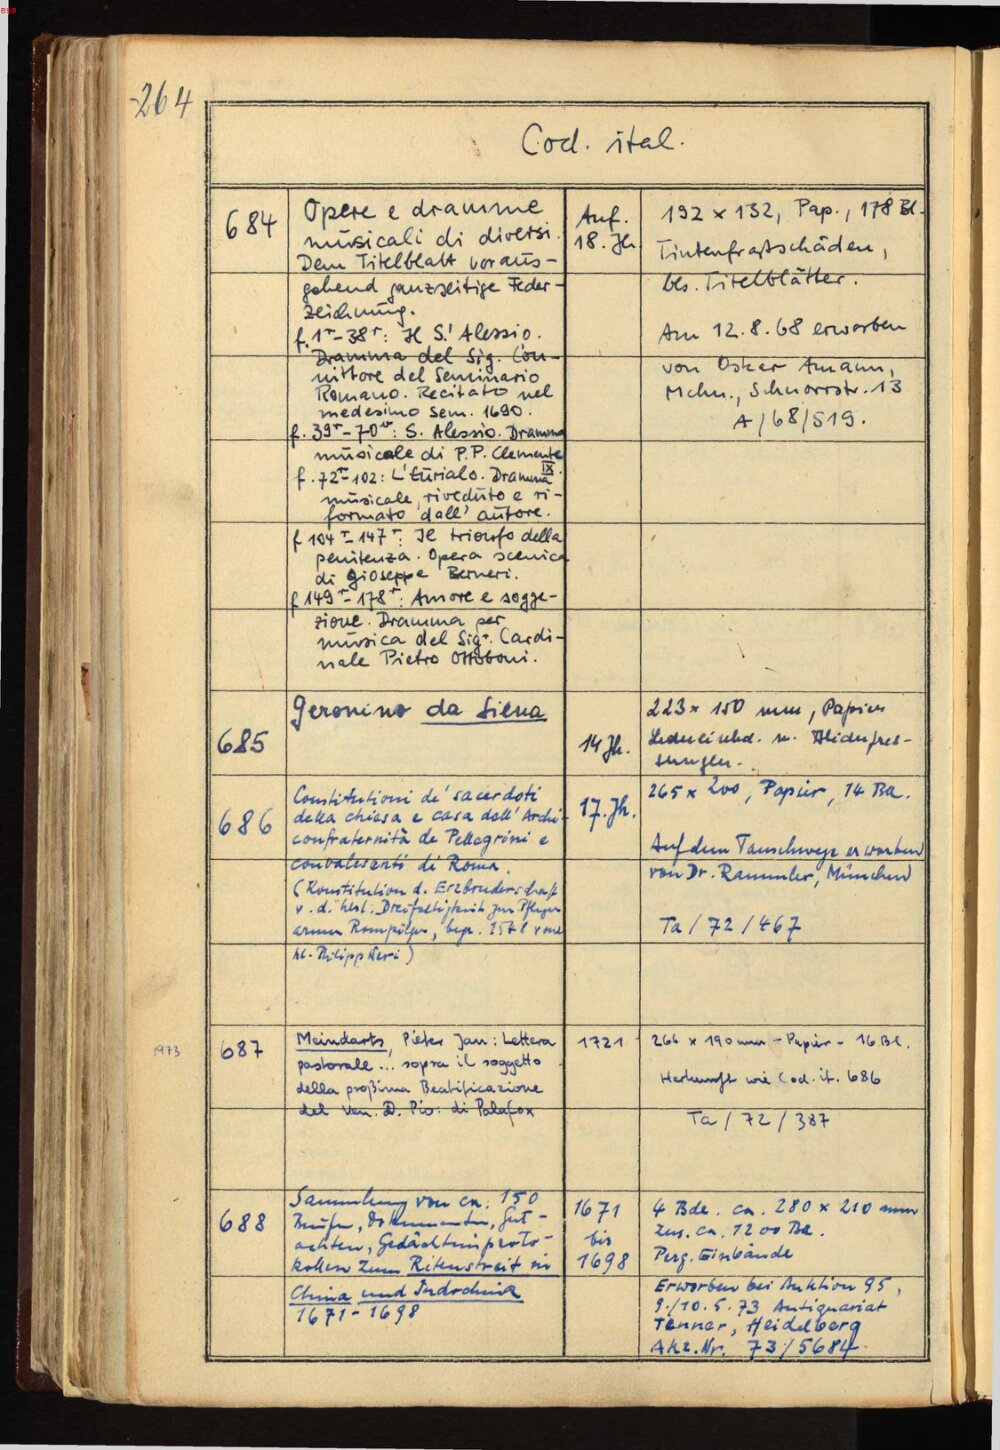 BSB
264
Cod. ital.
684
Opere e dramme
musicali di diversi.
Dem Titelblatt voraus-
gehend ganzseitige Feder-
zeichnung.
f. 1r-38r: Il S. Alessio.
Dramma del Sig. Con-
vittore del Seminario
Romano. Recitato nel
medesimo Sem. 1690.
f. 39r-70v: S. Alessio. Dramma
musicale di P.P. Clemente
IX.
f. 72r-102: L'Eurialo. Dramma
musicale, riveduto e ri-
formato dall' autore.
f 104r-147r: Il trionfo della
penitenza. Opera scenica
di Gioseppe Berneri.
f 149r-178r: Amore e sogge-
zione. Dramma per
musica del Sigr. Cardi-
nale Pietro Ottoboni.
Anf.
18. Jh.
192 x 132, Pap., 178 Bl.
Tintenfraßschäden,
bes. Titelblätter.
Am 12.8.68 erworben
von Oskar Amann,
Mchn., Schnorrstr. 13
A/68/519.
685
Geronimo da Siena
14 Jh.
223 x 150 mm, Papier
Ledereinbd. m. Blindpres-
sungen.
686
Constitutioni de' sacerdoti
della chiesa e casa dell' Archi-
confraternità de Pellegrini e
convalescenti di Roma.
(Konstitution d. Erzbruderschaft
v. d. heil. Dreifaltigkeit zur Pflege
armer Rompilger, begr. 1548 vom
hl. Philipp Neri)
17. Jh.
265 x 200, Papier, 14 Bll.
Auf dem Tauschwege erworben
von Dr. Rammler, München
Ta / 72 / 467
1973
687
Meindarts, Pieter Jan: Lettera
pastorale ... sopra il soggetto
della proßima Beatificazione
del Ven. D. Gio: di Palafox
1721
266 x 190 mm - Papier - 16 Bl.
Herkunft wie Cod. it. 686
Ta / 72 / 387
688
Sammlung von ca. 150
Briefen, Dokumenten, Gut-
achten, Gedächtnisproto-
kollen zum Ritenstreit in
China und Indochina
1671 - 1698
1671
bis
1698
4 Bde. ca. 280 x 210 mm
zus. ca. 1200 Bll.
Perg. Einbände
Erworben bei Auktion 95,
9./10. 5. 73 Antiquariat
Tenner, Heidelberg
Akz. Nr. 73/5684